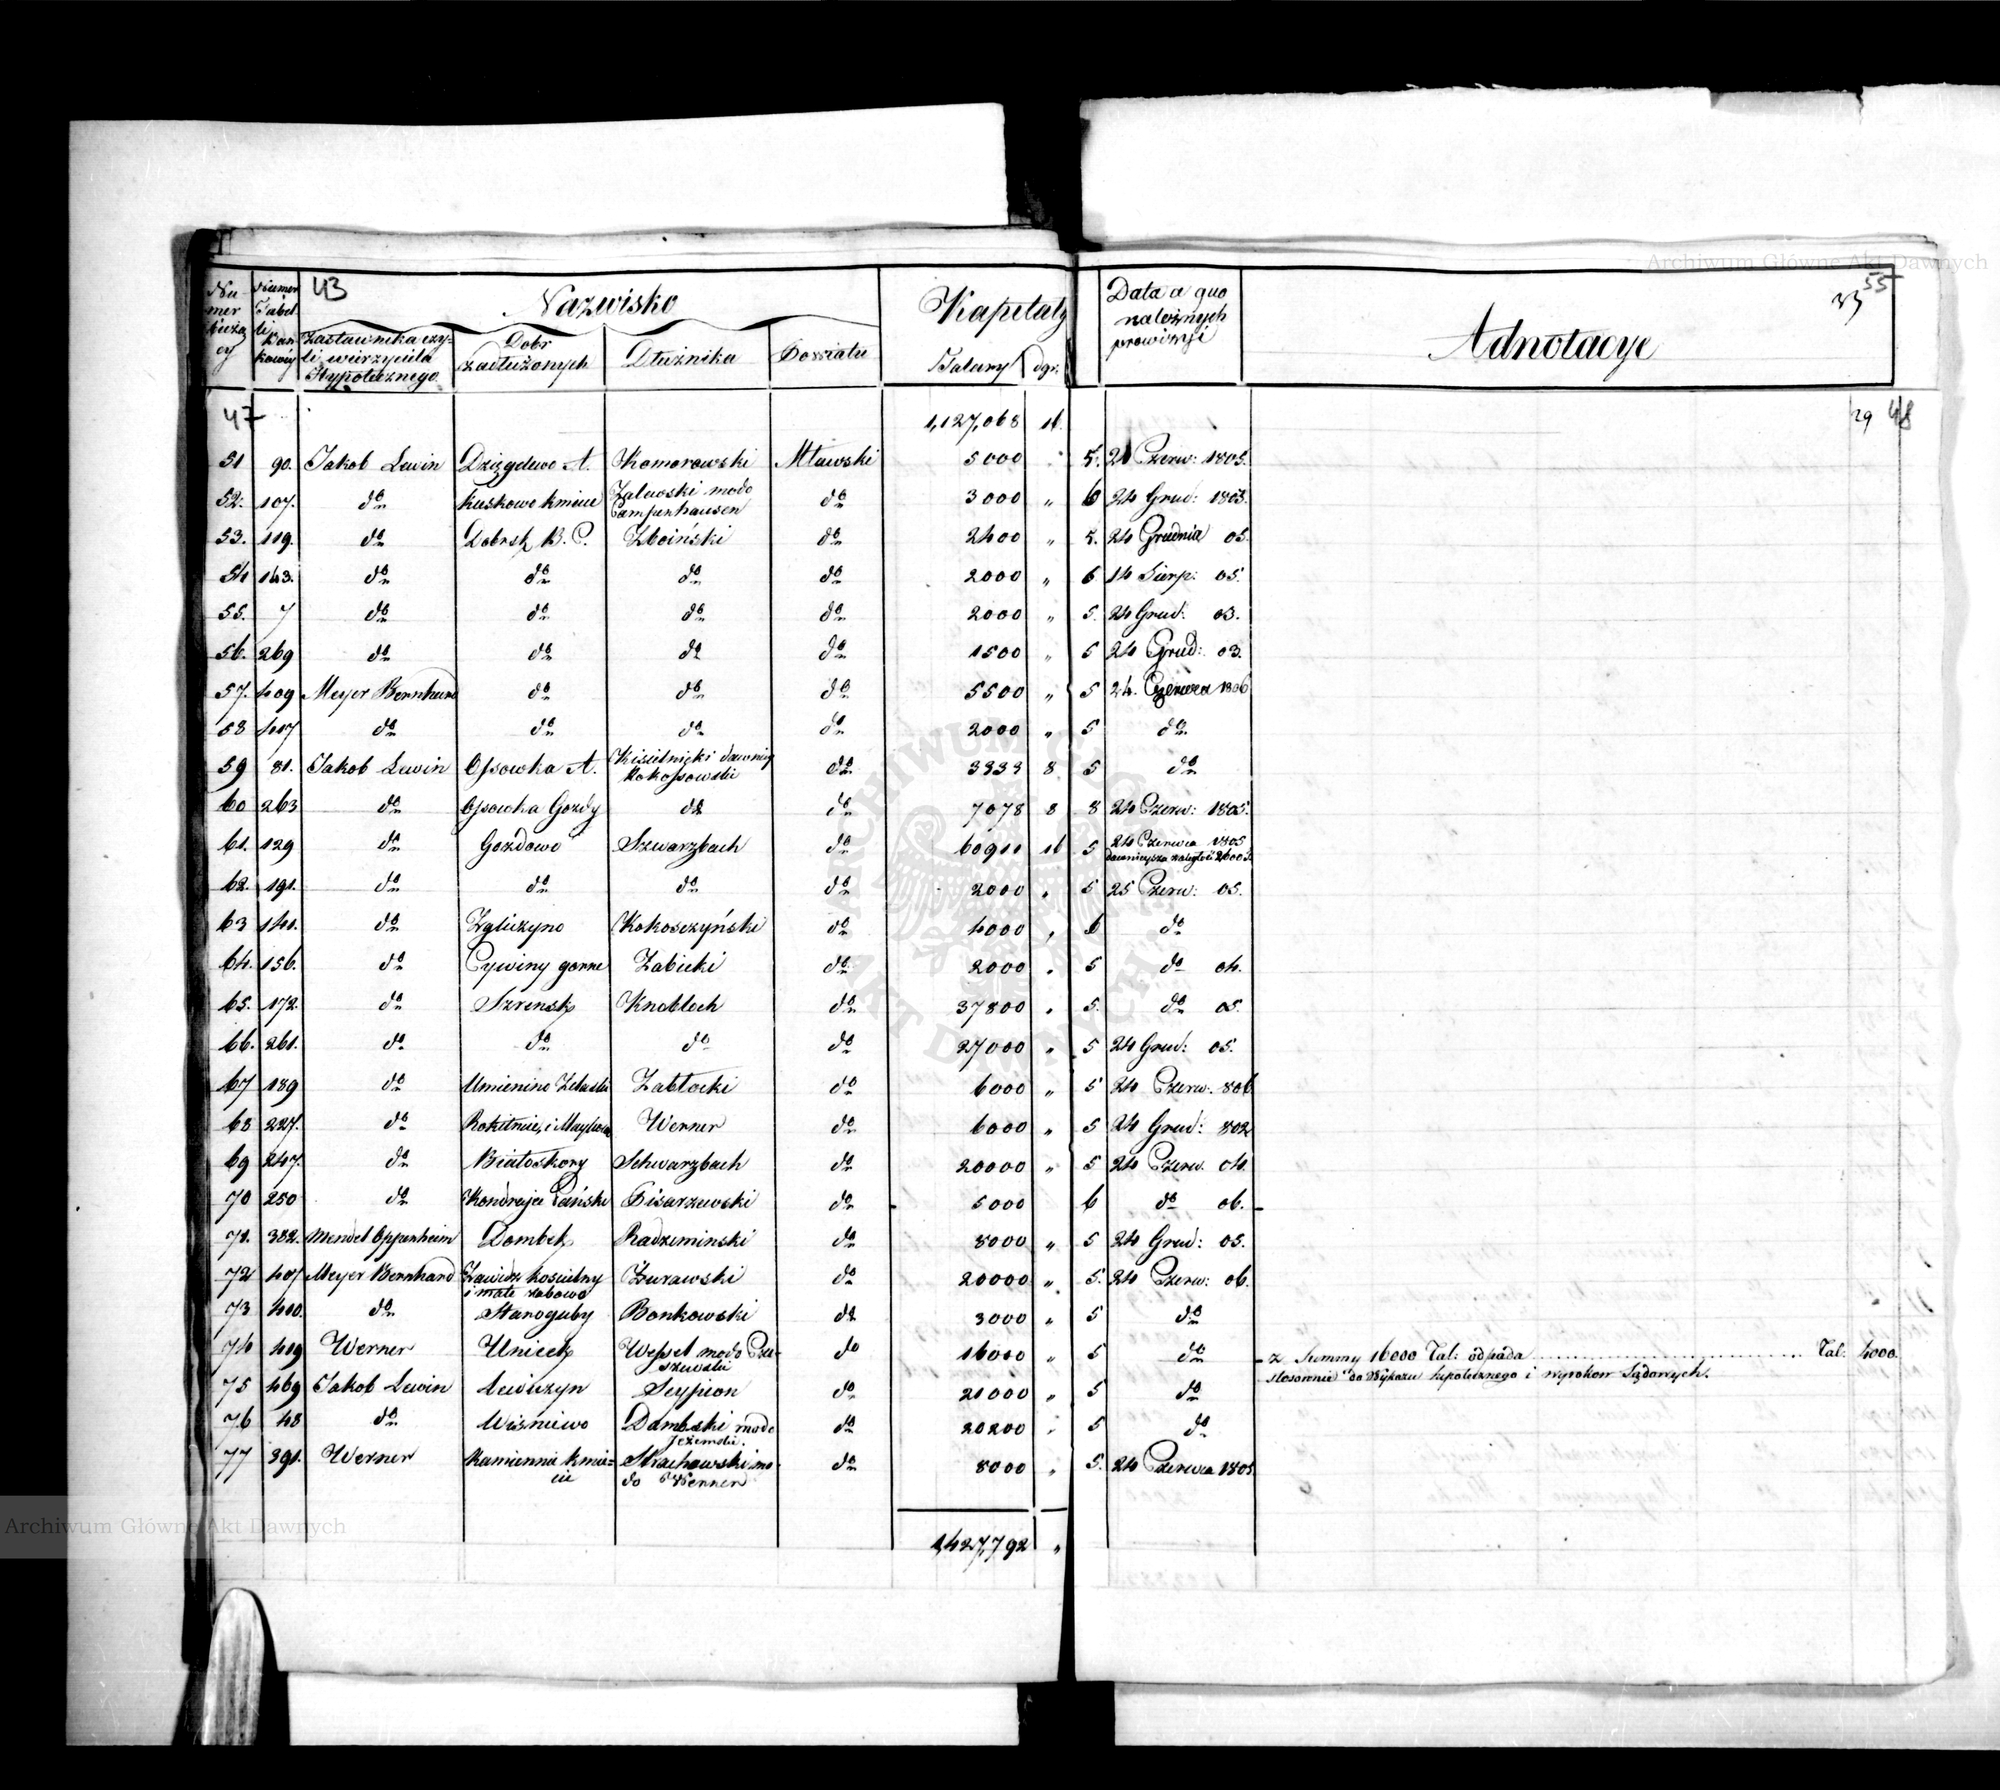 Archiwum Główne Akt Dawnych
43
55
Numer bieżący
Numer Tabelli Bankowey
Nazwisko
Zastawnika czyli wierzyciela Hypotecznego
Dobr zadłużonych
Dłużnika
Powiatu
Kapitały
Talary dgr.
Data a quo należnych prowizyi
Adnotacye
47 1,127,068 16. 29 48
51 90. Jakob Lewin Dzięgelewo A. Komorowski Mławski 5000 5. 24 Czerw: 1805.
52. 107. do Kuskowo Kmiece Zalewski modo Campenhausen do 3000 „ 6 24 Grud: 1803.
53. 119. do Dobrsk B. C. Zboiński do 2400 „ 5. 24 Grudnia 05.
54 143. do do do do 2000 „ 6 14 Sierp: 05.
55. 7 do do do do 2000 „ 5. 24 Grud: 03.
56. 269 do do do do 1500 „ 5 24 Grud: 03.
57. 409 Meyer Bernhard do do do 5500 „ 5 24. Czerwca 1806
58 417 do do do do 2000 „ 5 do
59 81. Jakob Lewin Ossowka A. Kisielnicki dawniey Rokossowski do 3333 8 5 do
60 263 do Ossowka Gozdy do do 7078 8 8 24 Czerw: 1805.
61. 129 do Gozdowo Szwarzbach do 60911 16 5 24 Czerwca 1805
dawnieysza zaległość 2600
62. 191. do do do do 2000 „ 5 25 Czerw: 05.
63 141. do Zgliczyno Kokoszczyński do 4000 „ 6 do
64. 156. do Cywiny gorne Zabicki do 2000 „ 5 do 04.
65. 172. do Szrensk Knobloch do 37800 „ 5. do 05.
66. 261. do do do do 27000 „ 5 24 Grud: 05.
67 189 do Umienino Zabłocki do 6000 „ 5 24 Czerw. 806
68 227. do Rokitnica i Werner do 6000 „ 5 24 Grud: 802
69 247. do Białoskory Schwarzbach do 20000 „ 5 24 Czerw. 04.
70 250 do Kondraja Pańska Pisarzewski do 5000 6 do 06.
71. 382. Mendel Oppenheim Dombek Radziminski do 8000 „ 5 24 Grud: 05.
72 407 Meyer Bernhard Zawidz Kościelny Żurawski do 20000 „ 5. 24 Czerw: 06.
i małe
73 400. do Staroguby Bonkowski do 3000 „ 5 do
74 419 Werner Unieck Wessel modo Ciszewski do 16000 „ 5 do z Summy 16000 Tal: odpada Tal: 4000.
stosownie do Wykazu hipotecznego i wyrokow Sądowych.
75 469 Jakob Lewin Lewiczyn Scypion do 21000 „ 5 do
76 48 do Wiśniewo Dambski modo Jeżewski. do 20200 5 do
77 391. Werner Kamienna Kmiecie Strachowski modo Werner do 8000 „ 5. 24 Czerwca 1805
1,427,792 „
Archiwum Główne Akt Dawnych
ARCHIWUM GŁÓWNE AKT DAWNYCH